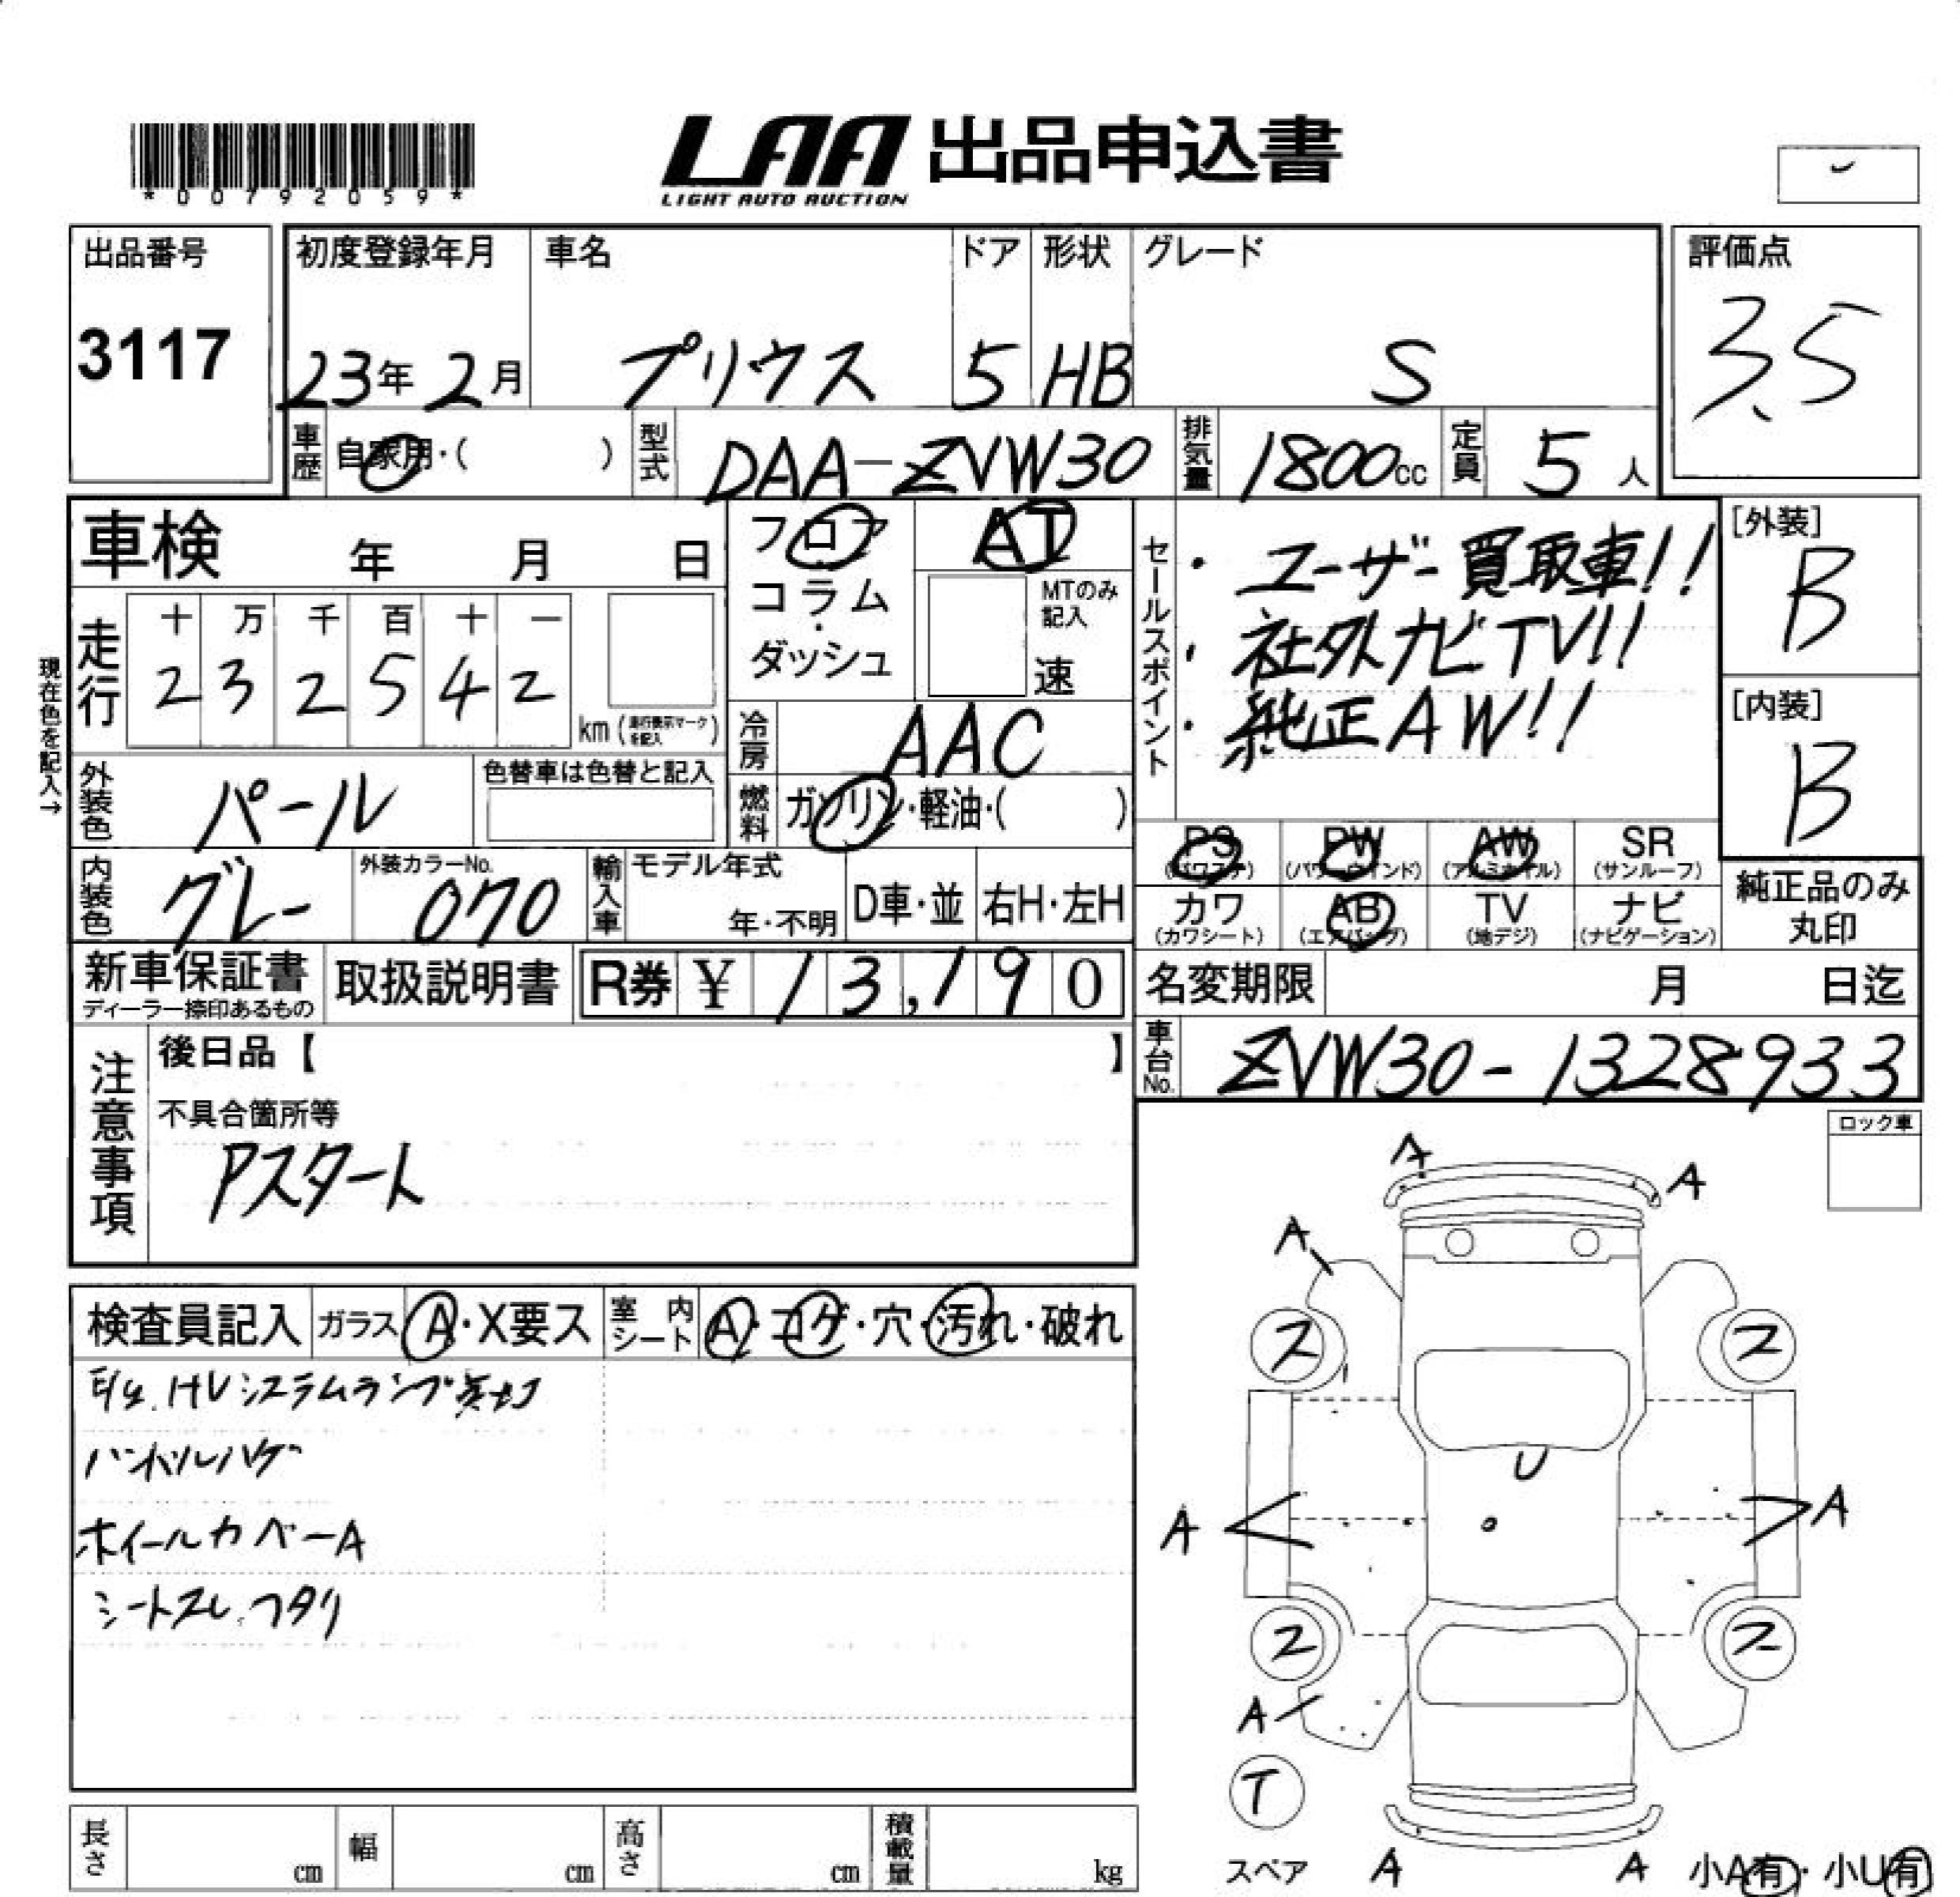 *00792059*
LAA 出品申込書
LIGHT AUTO AUCTION
出品番号 3117
初度登録年月 23年 2月
車名 プリウス
ドア 5
形状 HB
グレード S
評価点 3.5
車歴 自家用・( )
型式 DAA-ZVW30
排気量 1800cc
定員 5人
車検 年 月 日
フロア
コラム
・
ダッシュ
AT
MTのみ記入
速
セールスポイント
・ユーザー買取車!!
・社外ナビTV!!
・純正AW!!
[外装] B
[内装] B
現在色を記入→
走行
十 万 千 百 十 一
2 3 2 5 4 2
km (走行表示マークを記入)
冷房 AAC
外装色 パール
色替車は色替と記入
燃料 ガソリン・軽油・( )
PS (パワステ)
PW (パワーウインド)
AW (アルミホイル)
SR (サンルーフ)
カワ (カワシート)
AB (エアバッグ)
TV (地デジ)
ナビ (ナビゲーション)
純正品のみ
丸印
内装色 グレー
外装カラーNo. 070
輸入車 モデル年式 年・不明
D車・並
右H・左H
新車保証書
ディーラー捺印あるもの
取扱説明書
R券 ¥ 13,190
名変期限 月 日迄
車台No. ZVW30-1328933
注意事項
後日品【 】
不具合箇所等
Pスタート
ロック車
検査員記入
ガラス A・X要ス
室内シート A・コゲ・穴・汚れ・破れ
HVシステムランプ点灯
ハンドルハゲ
ホイールカバーA
シートスレ.ヘタリ
A
A
A
ス
ス
U
A
A
ス
ス
A
T
スペア
A
A
小A有・小U有
長さ cm
幅 cm
高さ cm
積載量 kg